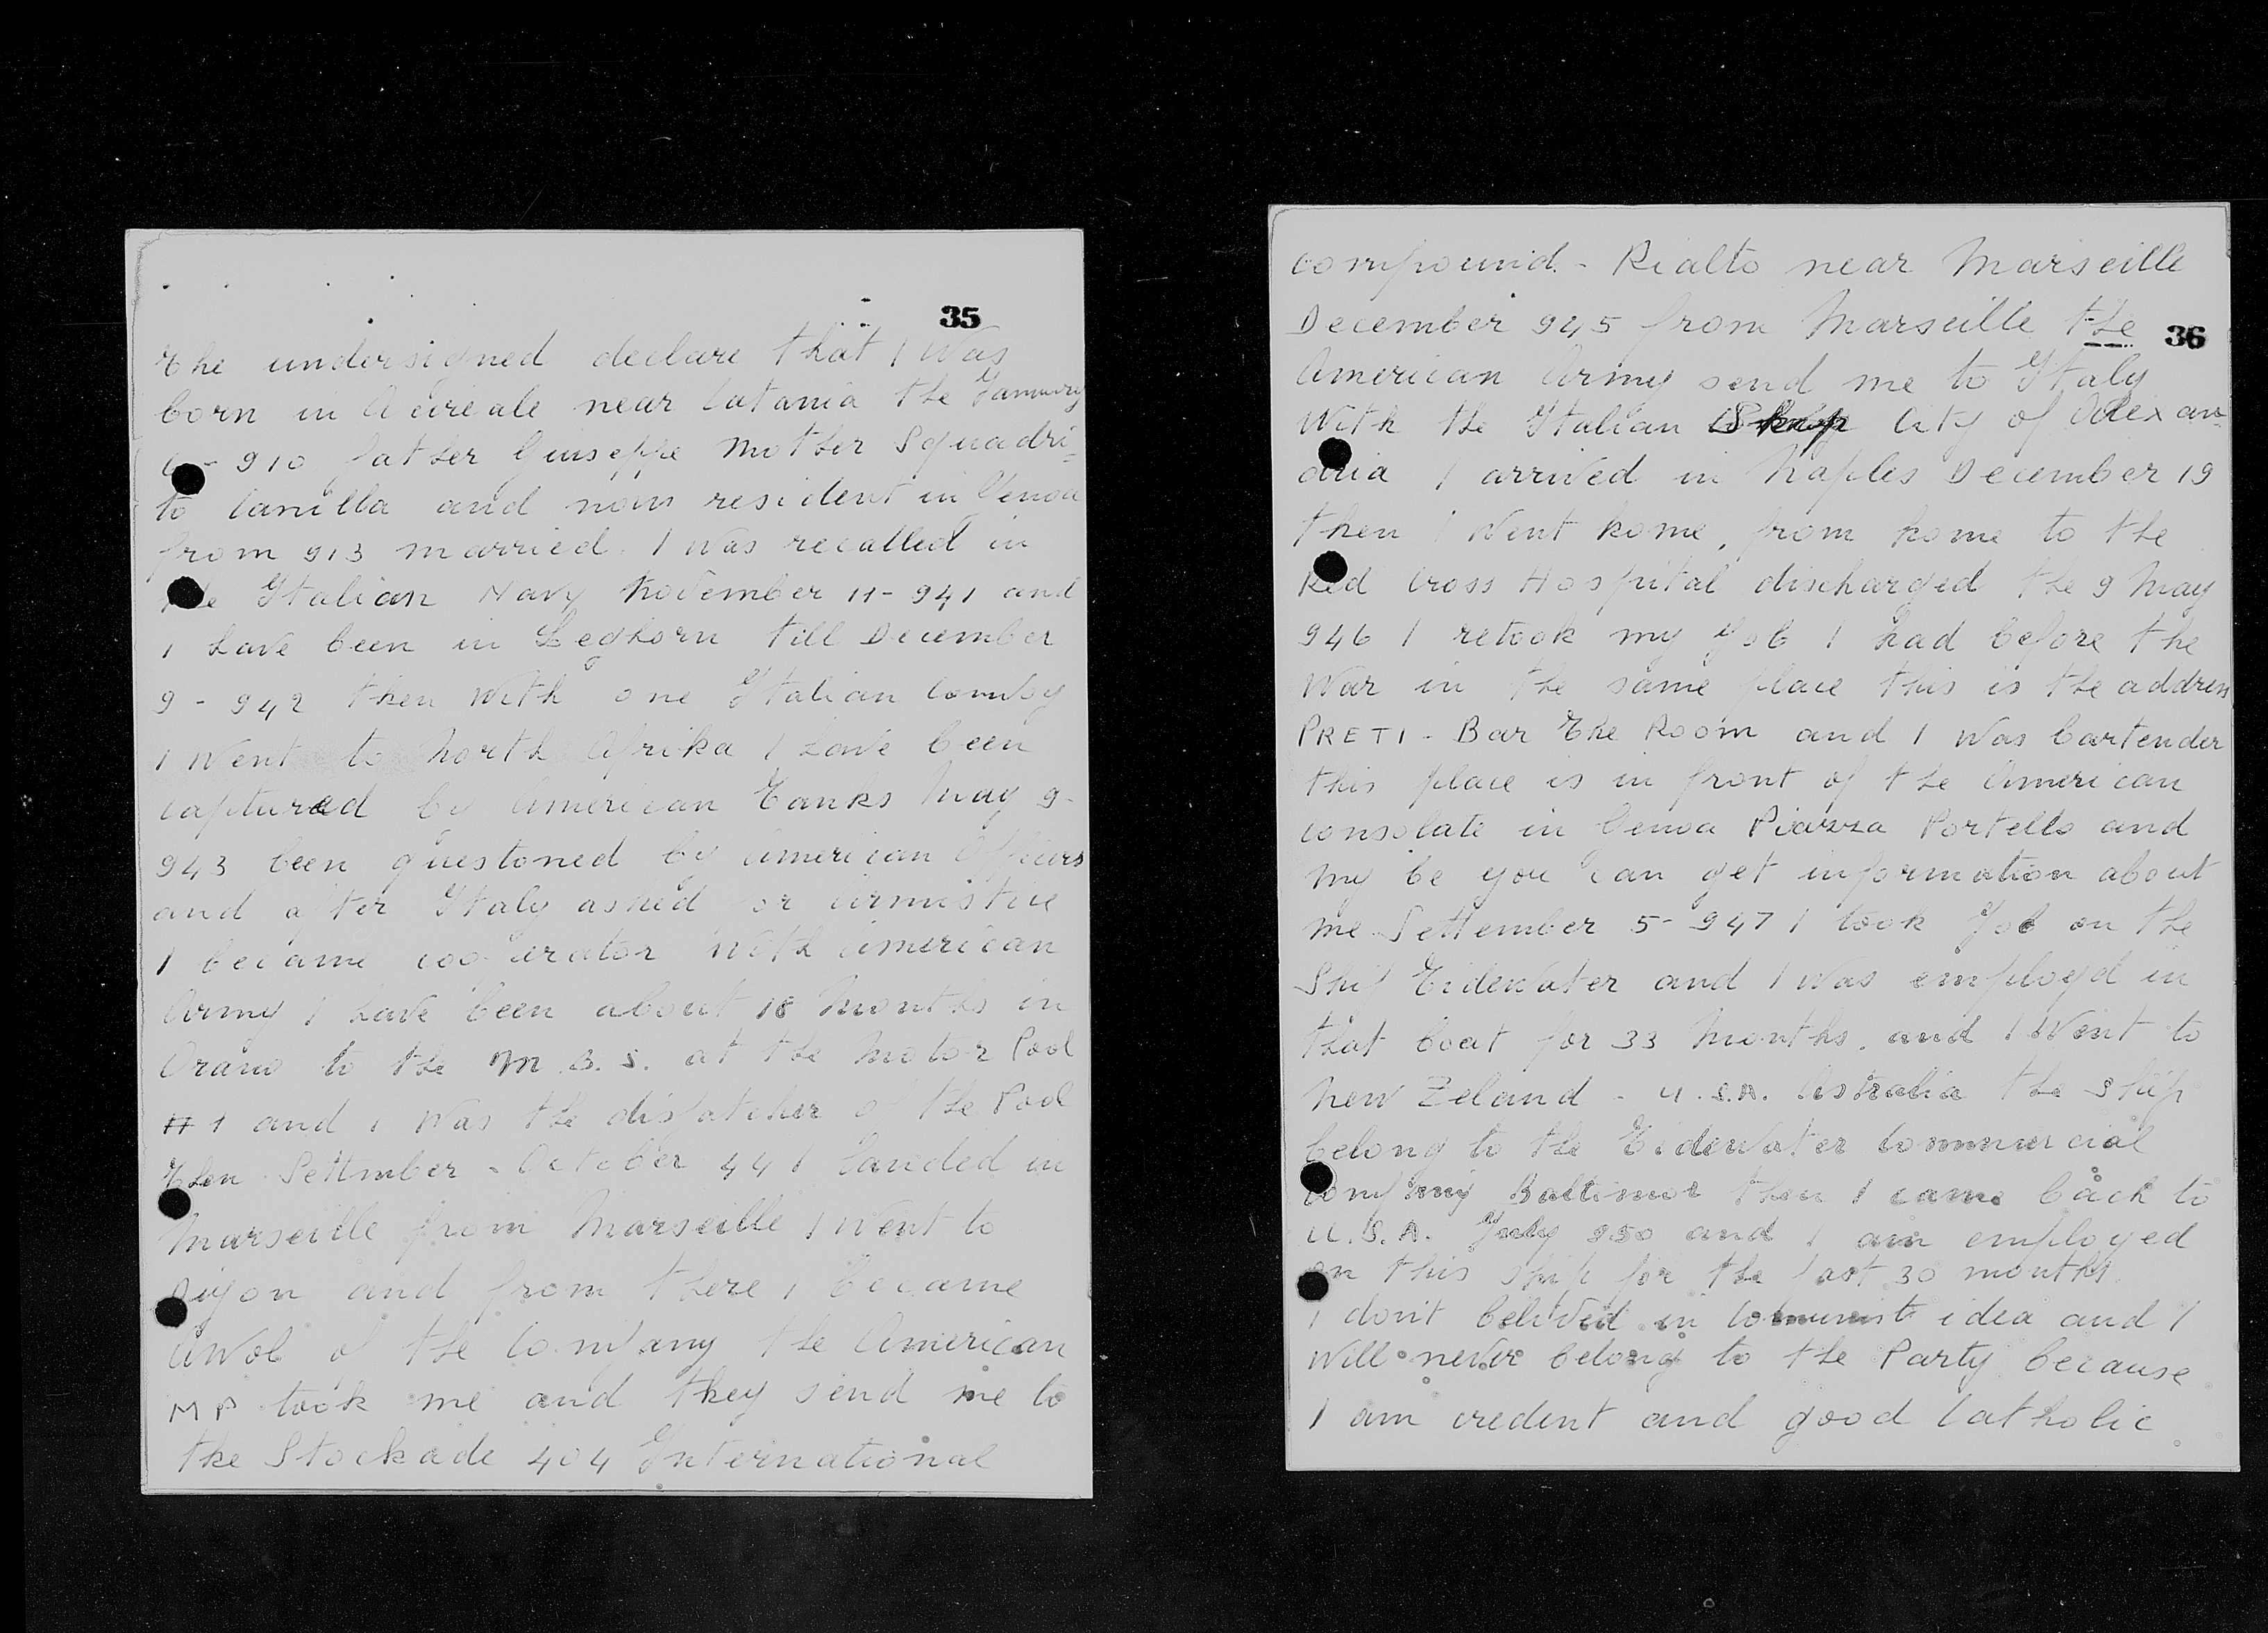 35
The undersigned declare that I was
born in Acireale near Catania the January
6 - 910 father Giuseppe mother Squadri=
to Camilla and now resident in Genoa
from 913 married. I was recalled in
the Italian Navy November 11 - 941 and
I have been in Leghorn till December
9 - 942 then with one Italian
I went to North Afrika I have been
captured by American Tanks May 9 -
943 been questoned by American Officers
and after Italy asked for armistice
I became cooperator with American
Army I have been about 18 months in
Orano to the M.B.S. at the Motor Pool
# 1 and I was the dispatcher of the Pool
then Settember - October 44 I landed in
Marseille from Marseille I went to
Dijon and from there I became
AWol of the Company the American
MP took me and they send me to
the Stockade 404 International
36
compound - Rialto near Marseille
December 945 from Marseille the
American Army send me to Italy
With the Italian City of Alexan=
dria I arrived in Naples December 19
then I went home, from home to the
Red Cross Hospital discharged the 9 May
946 I retook my Job I had before the
War in the same place this is the address
PRETI - Bar The Room and I was bartender
this place is in front of the American
consolate in Genoa Piazza Portello and
my be you can get information about
me Settember 5 - 947 I took Job on the
Ship Tidewater and I was employd in
that boat for 33 months. and I went to
New Zeland - U.S.A. Astralia the Ship
belong to the Tidewater Commercial
Company Baltimor then I came back to
U.S.A. July 950 and I am employed
on this Ship for the last 30 months
I don't belived in Comunist idea and I
Will never belong to the Party because
I am credent and good Catholic